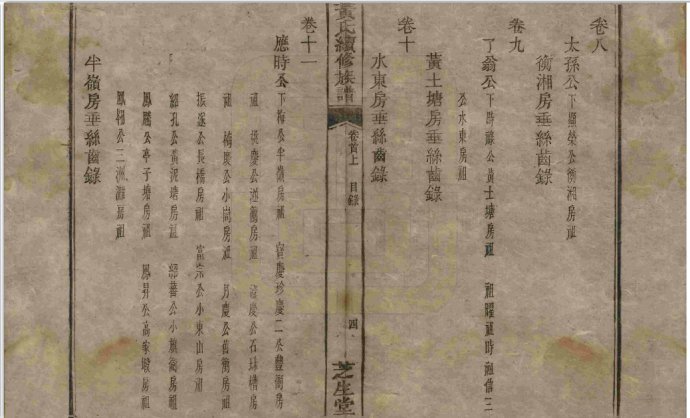 卷八
太孫公下顯榮公衡湘房祖
衡湘房垂絲齒錄
卷九
了翁公下時公黃土塘房祖 祖時祖僧三
公水東房祖
黃土塘房垂絲齒錄
卷十
水東房垂絲齒錄
黃氏續修族譜
卷首上 目錄
四
芝生堂
卷十一
應時公下梅公半嶺房祖 寶慶珍慶二公豐衝房
祖 慶公房祖 慶公石珠橋房
祖 椅慶公小嵩房祖 月慶公舊衝房祖
振遂公長橋房祖 富宗公小東山房祖
細孔公黃泥塘房祖 紹蕃公小旗衝房祖
鳳騰公亭子塘房祖 鳳昇公高家塅房祖
鳳翔公三洲灘房祖
半嶺房垂絲齒錄